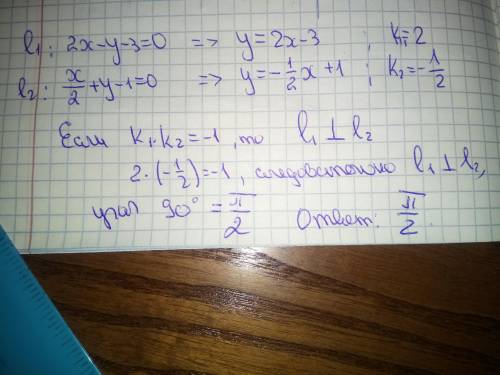 l₁: 2x-y-3=0 => y=2x-3 ; k₁=2
l₂: x/2+y-1=0 => y=-1/2x+1 ; k₂=-1/2
Если k₁·k₂=-1, то l₁⊥l₂
2·(-1/2)=-1, следовательно l₁⊥l₂,
угол 90°=π/2 Ответ: π/2.